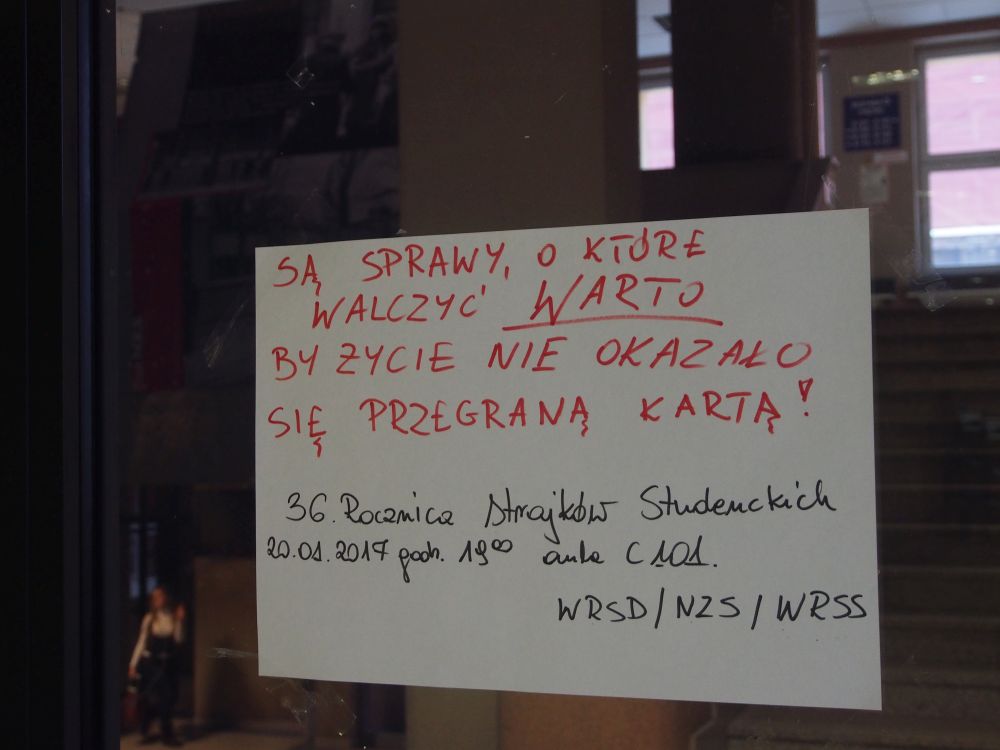 SĄ SPRAWY, O KTÓRE
WALCZYĆ WARTO
BY ZYCIE NIE OKAZAŁO
SIĘ PRZEGRANĄ KARTĄ!
36. Rocznica Strajków Studenckich
20.01.2017 godz. 19⁰⁰ aula C101.
WRSD/NZS/WRSS